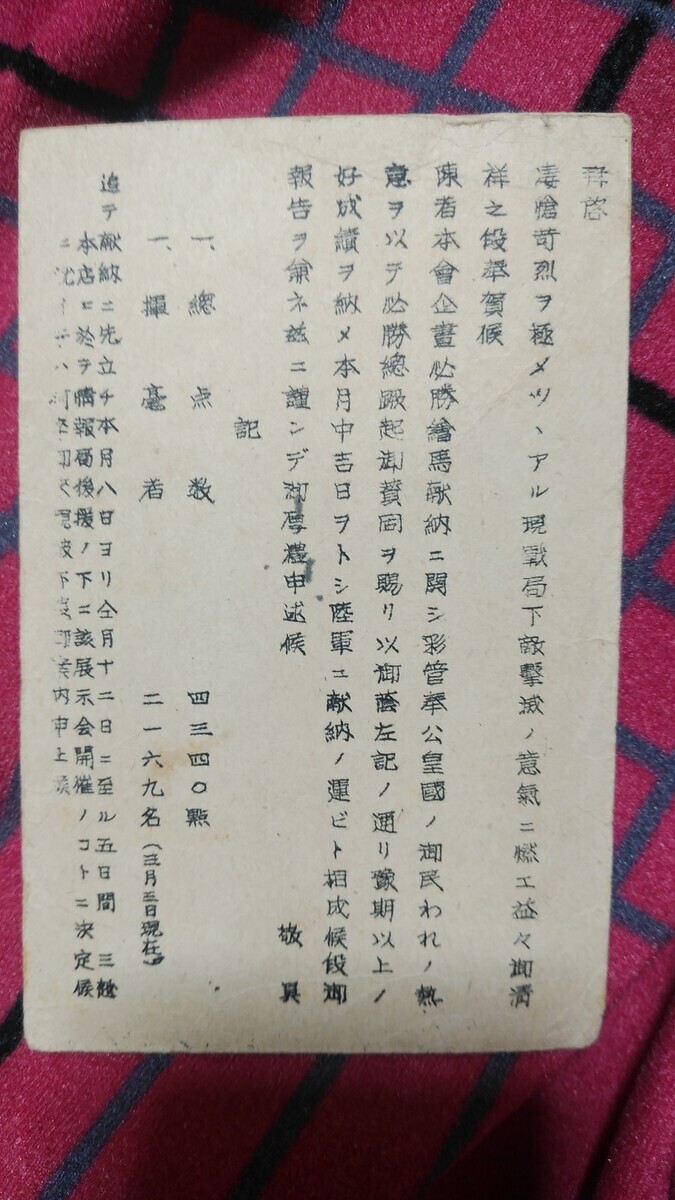 拜啓
凄愴苛烈ヲ極メツヽアル現戰局下敵擊滅ノ意氣ニ燃エ益々御淸
祥之段奉賀候
陳者本會企畫必勝繪馬献納ニ関シ彩管奉公皇國ノ御民われノ熱
意ヲ以テ必勝總蹶起御賛同ヲ賜リ以御蔭左記ノ通リ豫期以上ノ
好成績ヲ納メ本月中吉日ヲトシ陸軍ニ献納ノ運ビト相成候段御
報告ヲ兼ネ玆ニ謹ンデ御厚禮申述候
敬具
記
一、總点数 四三四〇點
一、揮毫者 二一六九名(三月三日現在)
追テ献納ニ先立チ本月八日ヨリ仝月十二日ニ至ル五日間 三越
本店ニ於テ情報局後援ノ下ニ該展示会開催ノコトニ決定候
ニ 御案内申上候